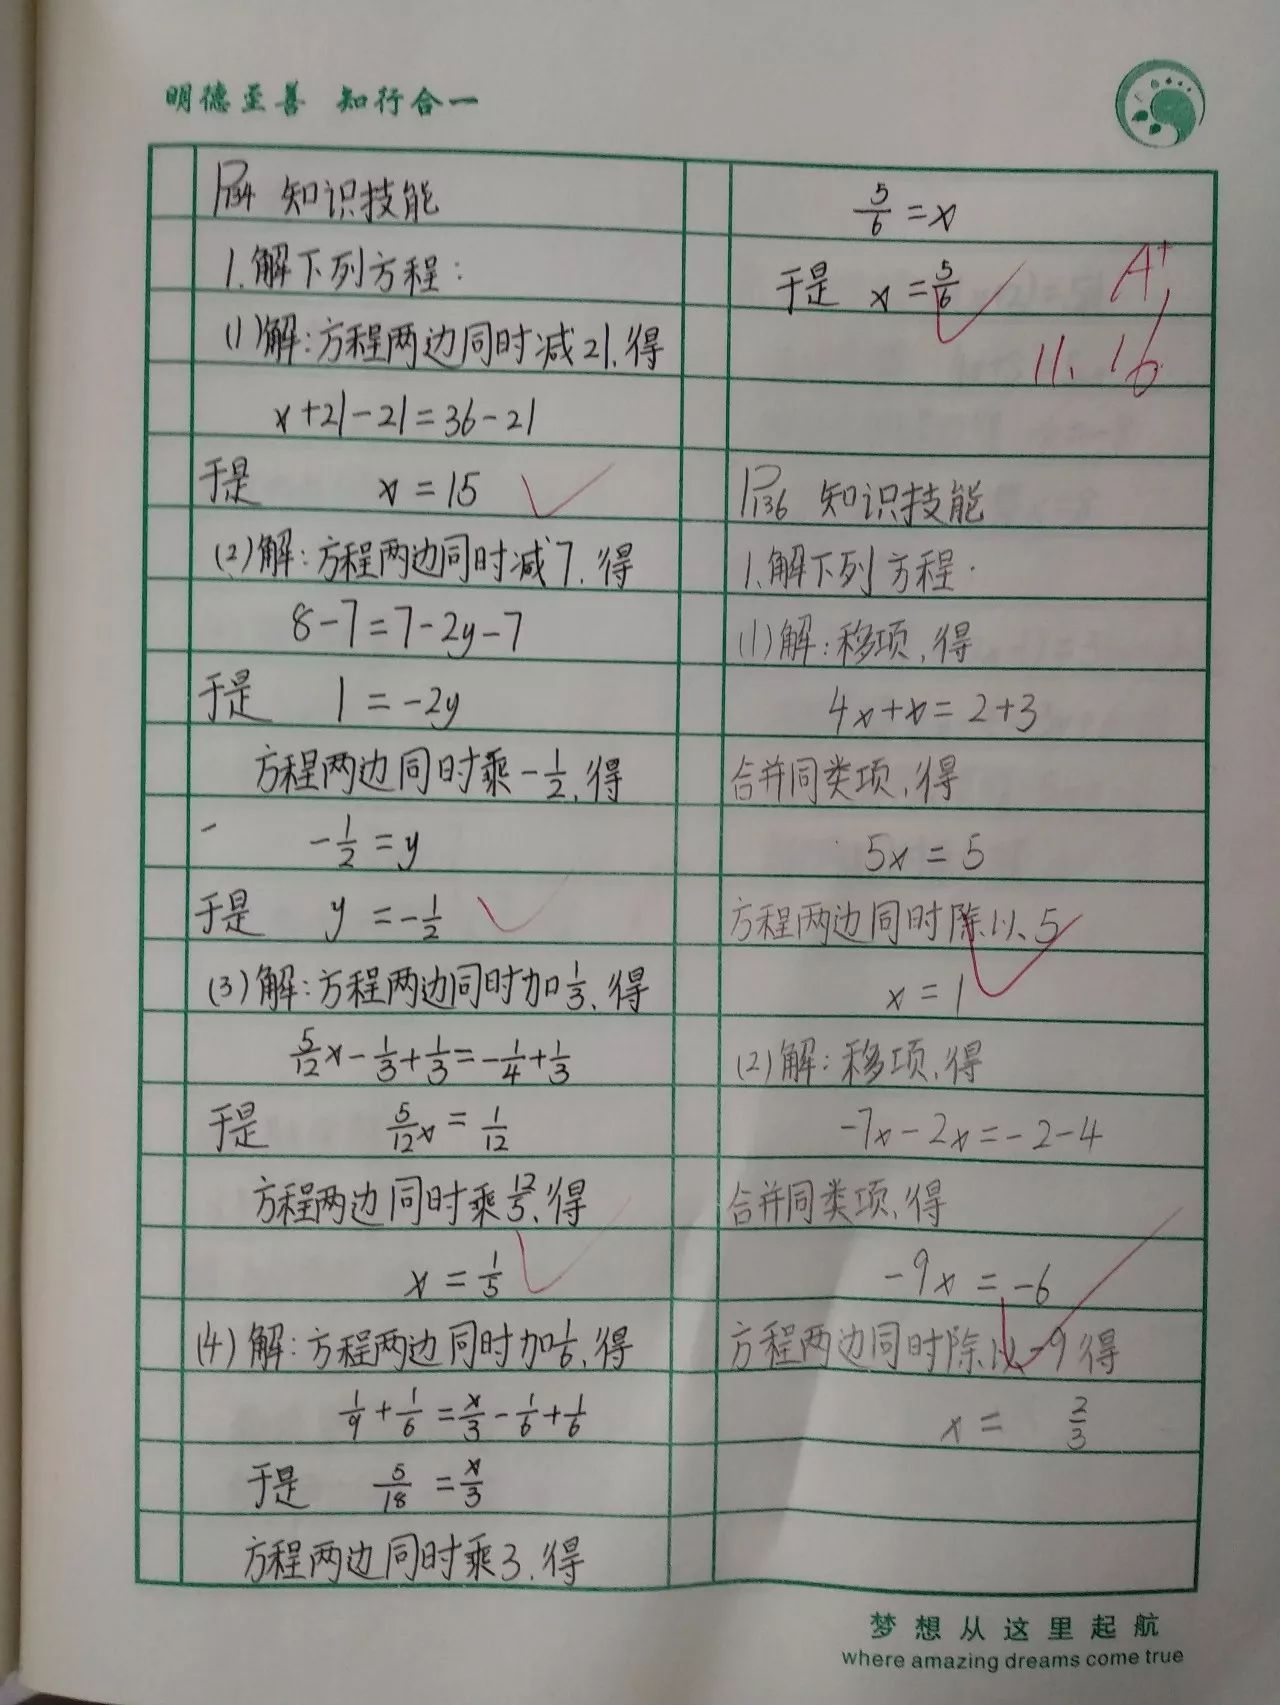 明德至善 知行合一
P134 知识技能
1.解下列方程:
(1)解:方程两边同时减21,得
x+21-21=36-21
于是 x=15
(2)解:方程两边同时减7,得
8-7=7-2y-7
于是 1=-2y
方程两边同时乘-1/2,得
-1/2=y
于是 y=-1/2
(3)解:方程两边同时加1/3,得
5/12x-1/3+1/3=-1/4+1/3
于是 5/12x=1/12
方程两边同时乘12/5,得
x=1/5
(4)解:方程两边同时加1/6,得
1/9+1/6=x/3-1/6+1/6
于是 5/18=x/3
方程两边同时乘3,得
5/6=x
于是 x=5/6
A+
11.16
P136 知识技能
1.解下列方程.
(1)解:移项,得
4x+x=2+3
合并同类项,得
5x=5
方程两边同时除以5
x=1
(2)解:移项,得
-7x-2x=-2-4
合并同类项,得
-9x=-6
方程两边同时除以-9得
x= 2/3
梦想从这里起航
where amazing dreams come true